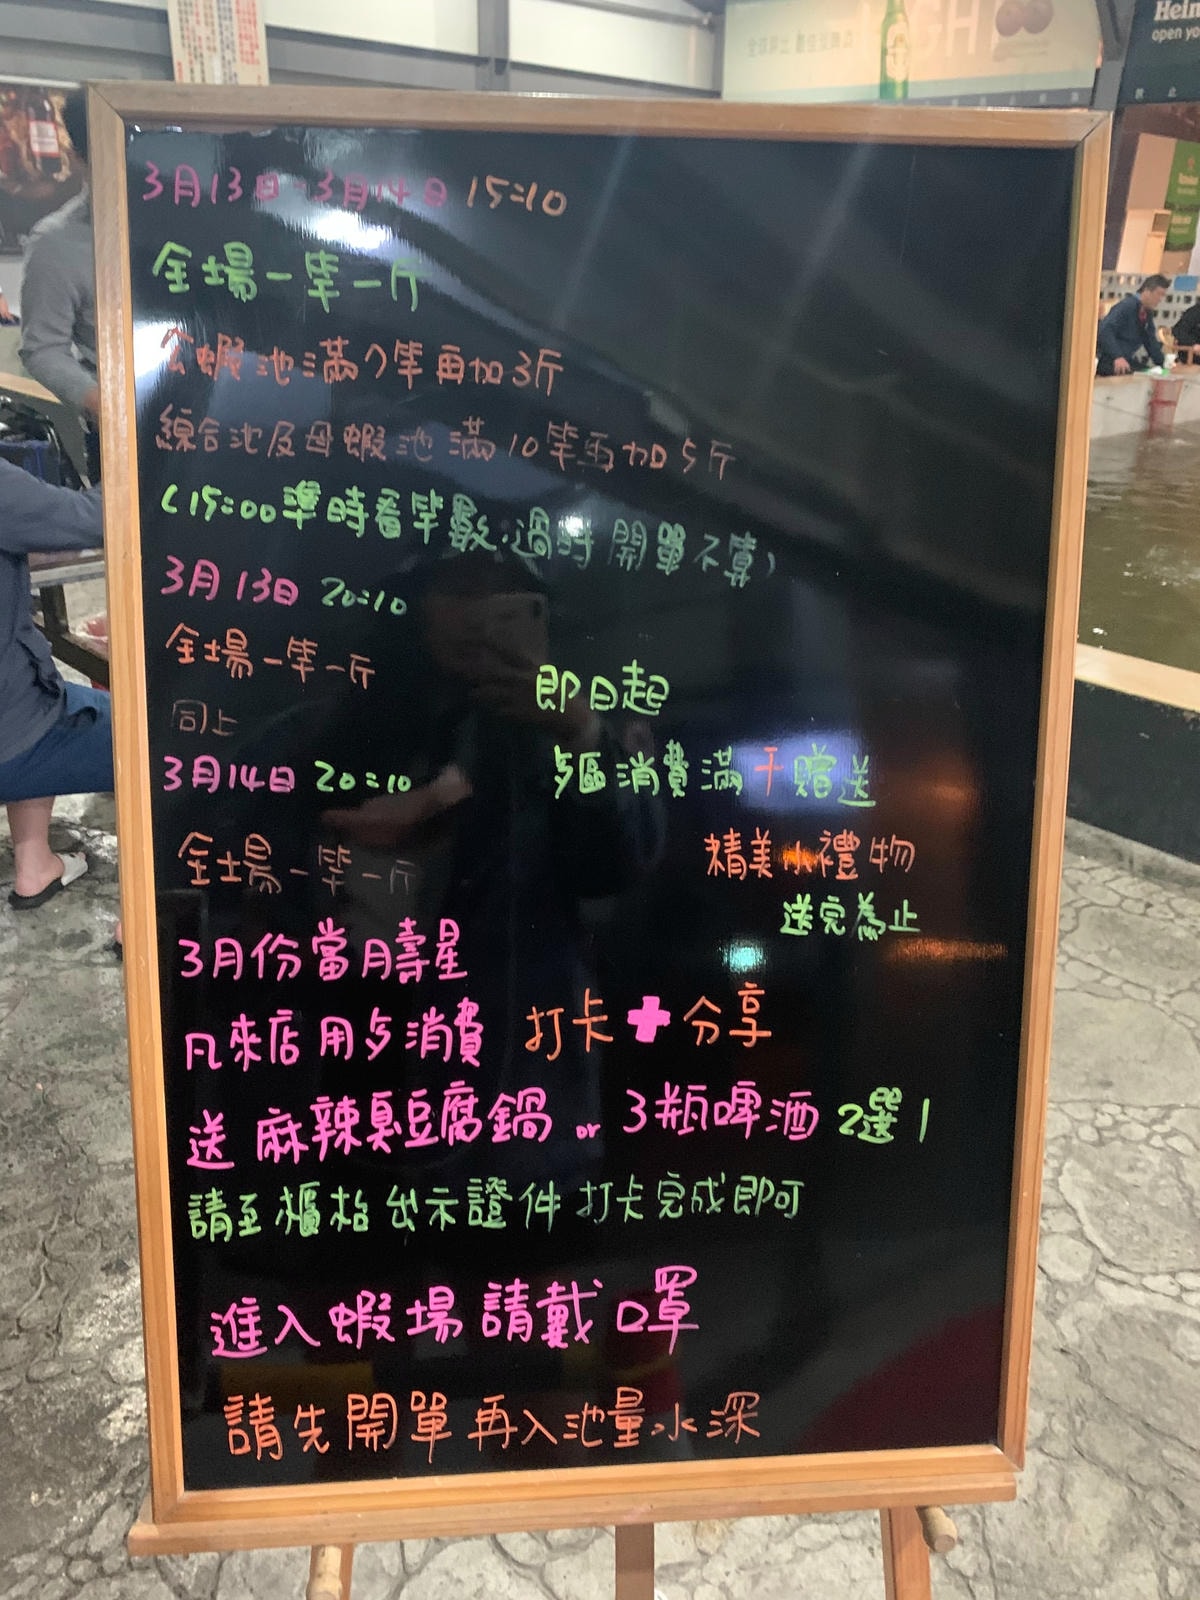 3月13日-3月14日 15:10
全場一竿一斤
公蝦池滿7竿再加3斤
綜合池及母蝦池滿10竿再加5斤
(15:00準時看竿數.過時開單不算)
3月13日 20:10
全場一竿一斤
同上
3月14日 20:10
全場一竿一斤
即日起
歺區消費滿千贈送
精美小禮物
送完為止
3月份當月壽星
凡來店用歺消費 打卡+分享
送麻辣臭豆腐鍋 or 3瓶啤酒 2選1
請至櫃枱出示證件打卡完成即可
進入蝦場請戴口罩
請先開單再入池量水深
Hein
open yo